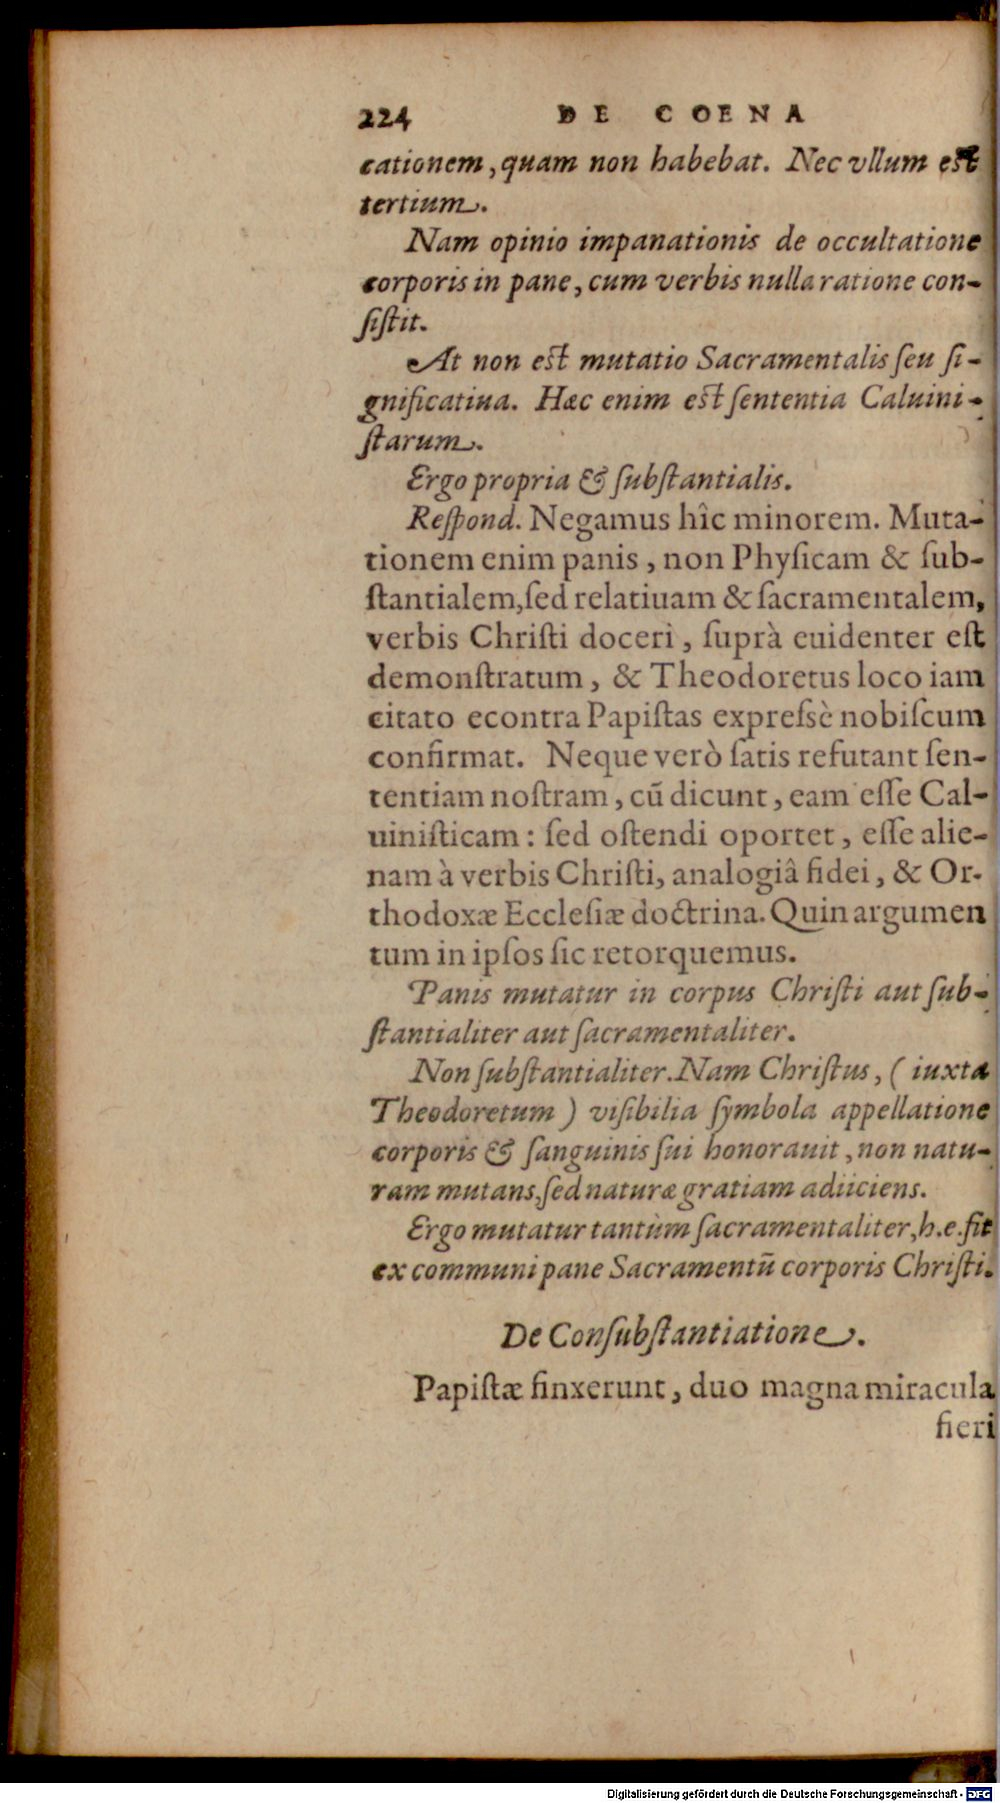 224 DE COENA
cationem, quam non habebat. Nec vllum est
tertium.
Nam opinio impanationis de occultatione
corporis in pane, cum verbis nulla ratione con-
ſiſtit.
At non est mutatio Sacramentalis ſeu ſi-
gnificatiua. Hæc enim est ſententia Caluini-
ſtarum.
Ergo propria & ſubſtantialis.
Reſpond. Negamus hîc minorem. Muta-
tionem enim panis, non Phyſicam & ſub-
ſtantialem, ſed relatiuam & ſacramentalem,
verbis Chriſti doceri, ſuprà euidenter eſt
demonſtratum, & Theodoretus loco iam
citato econtra Papiſtas expreſsè nobiſcum
confirmat. Neque verò ſatis refutant ſen-
tentiam noſtram, cū dicunt, eam eſſe Cal-
uiniſticam: ſed oſtendi oportet, eſſe alie-
nam à verbis Chriſti, analogiâ fidei, & Or-
thodoxæ Eccleſiæ doctrina. Quin argumen
tum in ipſos ſic retorquemus.
Panis mutatur in corpus Chriſti aut ſub-
ſtantialiter aut ſacramentaliter.
Non ſubſtantialiter. Nam Chriſtus, (iuxta
Theodoretum) viſibilia ſymbola appellatione
corporis & ſanguinis ſui honorauit, non natu-
ram mutans, ſed naturæ gratiam adiiciens.
Ergo mutatur tantùm ſacramentaliter, h.e. fit
ex communi pane Sacramentū corporis Chriſti.
De Conſubſtantiatione.
Papiſtæ finxerunt, duo magna miracula
fieri
Digitalisierung gefördert durch die Deutsche Forschungsgemeinschaft - DFG